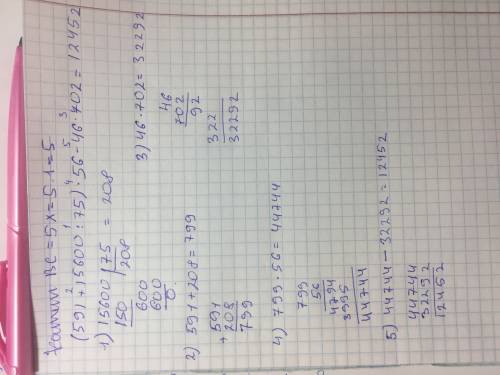 BC = 5x = 5·1 = 5
(591 + 15600 : 75)·56 - 46·702 = 12452
2 1 4 5 3
1) 15600 | 75 = 208
150 208
600
600
0
2) 591 + 208 = 799
+ 591
208
799
3) 46·702 = 32292
46
702
92
322
32292
4) 799·56 = 44744
799
56
4794
3995
44744
5) 44744 - 32292 = 12452
44744
32292
12452